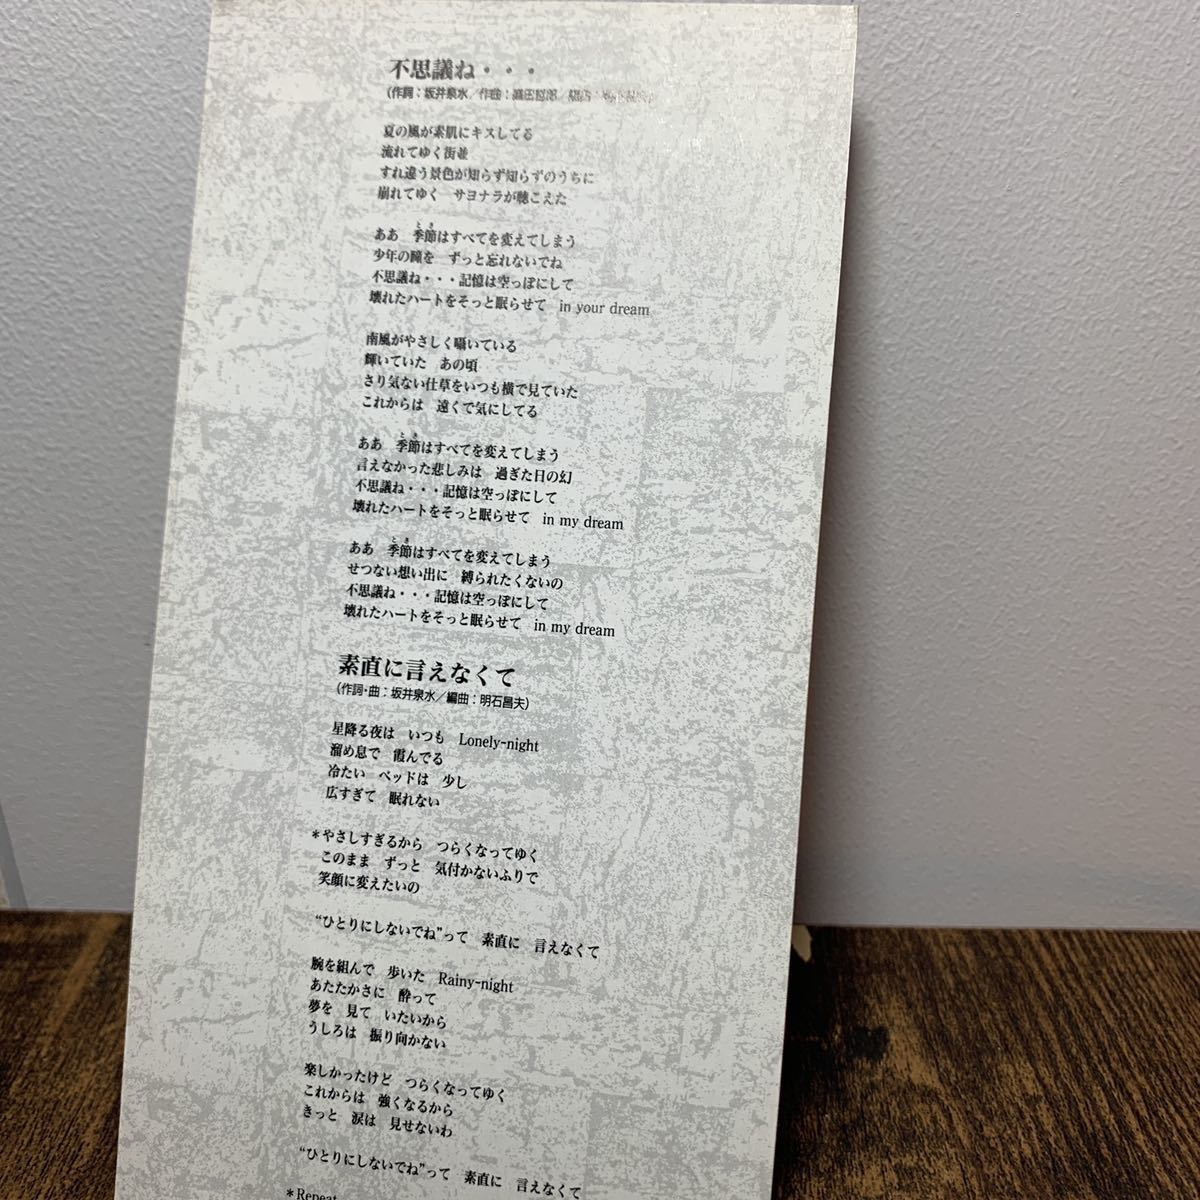 不思議ね・・・
(作詞：坂井泉水／作曲：
夏の風が素肌にキスしてる
流れてゆく街並
すれ違う景色が知らず知らずのうちに
崩れてゆく　サヨナラが聴こえた
ああ　季節(とき)はすべてを変えてしまう
少年の瞳を　ずっと忘れないでね
不思議ね・・・記憶は空っぽにして
壊れたハートをそっと眠らせて　in your dream
南風がやさしく囁いている
輝いていた　あの頃
さり気ない仕草をいつも横で見ていた
これからは　遠くで気にしてる
ああ　季節(とき)はすべてを変えてしまう
言えなかった悲しみは　過ぎた日の幻
不思議ね・・・記憶は空っぽにして
壊れたハートをそっと眠らせて　in my dream
ああ　季節(とき)はすべてを変えてしまう
せつない想い出に　縛られたくないの
不思議ね・・・記憶は空っぽにして
壊れたハートをそっと眠らせて　in my dream
素直に言えなくて
(作詞・曲：坂井泉水／編曲：明石昌夫)
星降る夜は　いつも　Lonely-night
溜め息で　霞んでる
冷たい　ベッドは　少し
広すぎて　眠れない
＊やさしすぎるから　つらくなってゆく
このまま　ずっと　気付かないふりで
笑顔に変えたいの
“ひとりにしないでね”って　素直に　言えなくて
腕を組んで　歩いた　Rainy-night
あたたかさに　酔って
夢を　見て　いたいから
うしろは　振り向かない
楽しかったけど　つらくなってゆく
これからは　強くなるから
きっと　涙は　見せないわ
“ひとりにしないでね”って　素直に　言えなくて
＊Repeat